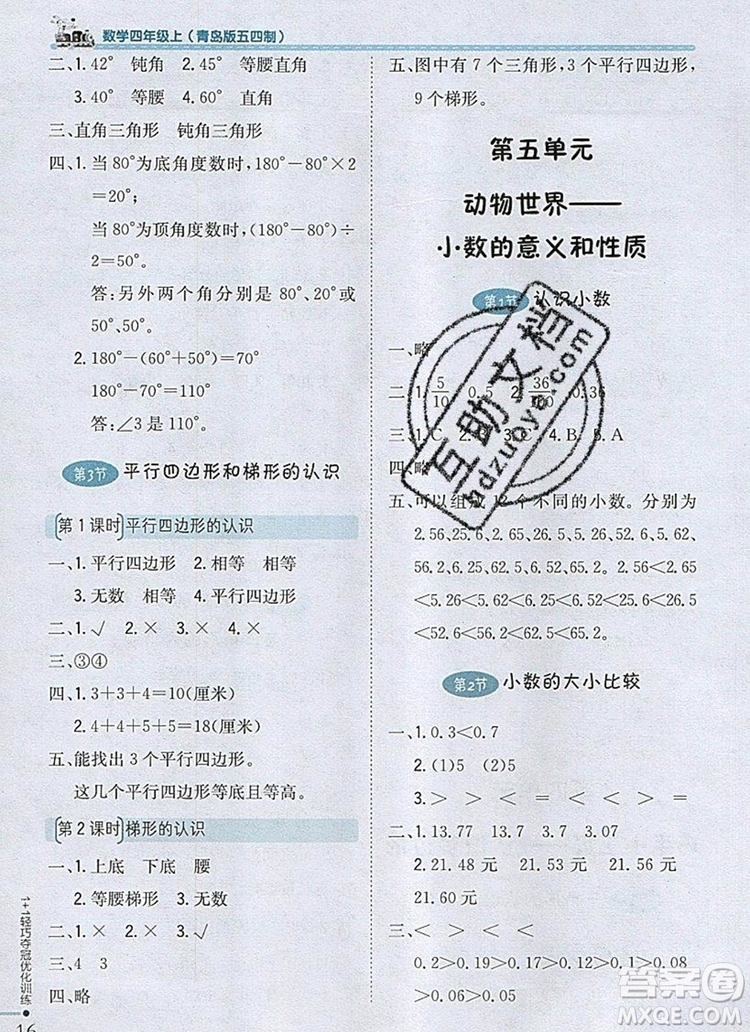 数学四年级上（青岛版五四制）
二、1.42° 钝角 2.45° 等腰直角
3.40° 等腰 4.60° 直角
三、直角三角形 钝角三角形
四、1.当80°为底角度数时,180°-80°×2
=20°;
当80°为顶角度数时,(180°-80°)÷
2=50°。
答:另外两个角分别是80°、20°或
50°、50°。
2.180°-(60°+50°)=70°
180°-70°=110°
答:∠3是110°。
第3节 平行四边形和梯形的认识
第1课时 平行四边形的认识
一、1.平行四边形 2.相等 相等
3.无数 相等 4.平行四边形
二、1.√ 2.× 3.× 4.×
三、③④
四、1.4+3+4+3=14(厘米)
2.4+4+5+5=18(厘米)
五、能找出3个平行四边形。
这几个平行四边形等底且等高。
第2课时 梯形的认识
一、1.上底 下底 腰
2.等腰梯形 3.无数
二、1.× 2.√ 3.×
三、4 3
四、略
1+1轻巧夺冠优化训练
16
五、图中有7个三角形,3个平行四边形,
9个梯形。
第五单元
动物世界——
小数的意义和性质
第1节 认识小数
一、略
二、1.5/10 0.5 2.36/100 0.36
三、1.C 2.B 3.C 4.A 5.B
四、略
五、可以组成12个不同的小数。分别为
2.56、2.65、5.26、5.62、6.25、6.52、
56.2、65.2、26.5、62.5、25.6、52.6。2.56
<2.65<5.26<5.62<6.25<6.52<25.6
<26.5<52.6<56.2<62.5<65.2。
第2节 小数的大小比较
一、1.0.3<0.7
2.(1)5 (2)5
3.> > < = < >
二、1.13.77 3.7 13.7 3.07
2.21.48元 21.53元 21.54元
21.60元
三、< > < >
0.2>0.19>0.15>0.1>0.08
>0.06>0.05
互助文档
hdzuoye.com
答案圈
MXQE.COM